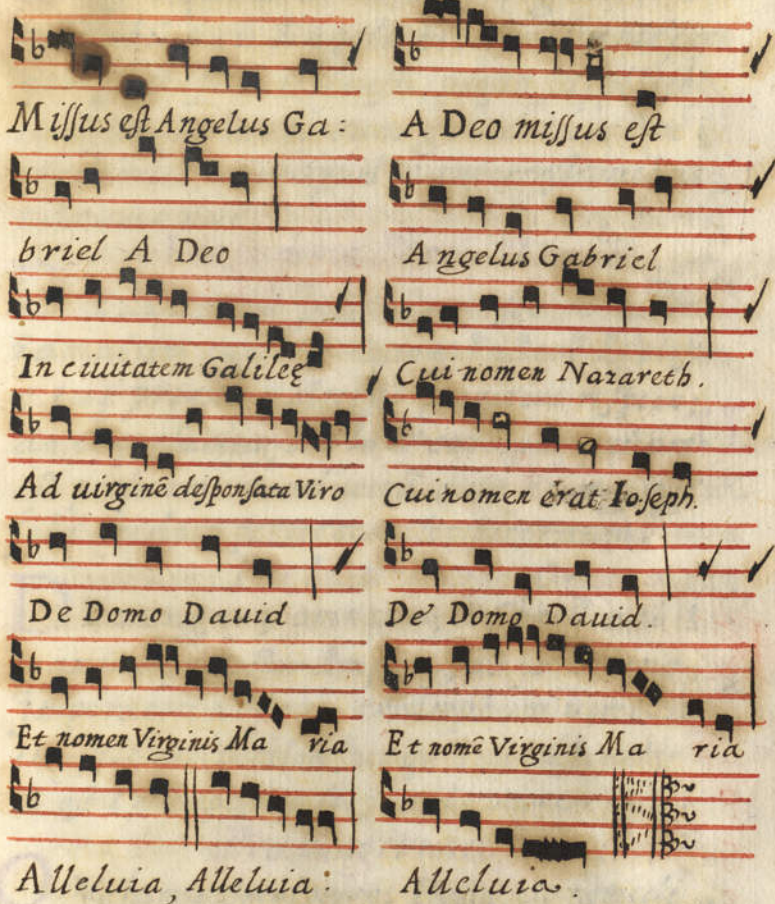 Miſſus eſt Angelus Ga:
briel A Deo
In ciuitatem Galileę
Ad uirginē deſponſata Viro
De Domo Dauid
Et nomen Virginis Ma ria
Alleluia, Alleluia:
A Deo miſſus eſt
Angelus Gabriel
Cui nomen Nazareth.
Cui nomen erat Ioſeph.
De Domo Dauid.
Et nomē Virginis Ma ria
Alleluia.